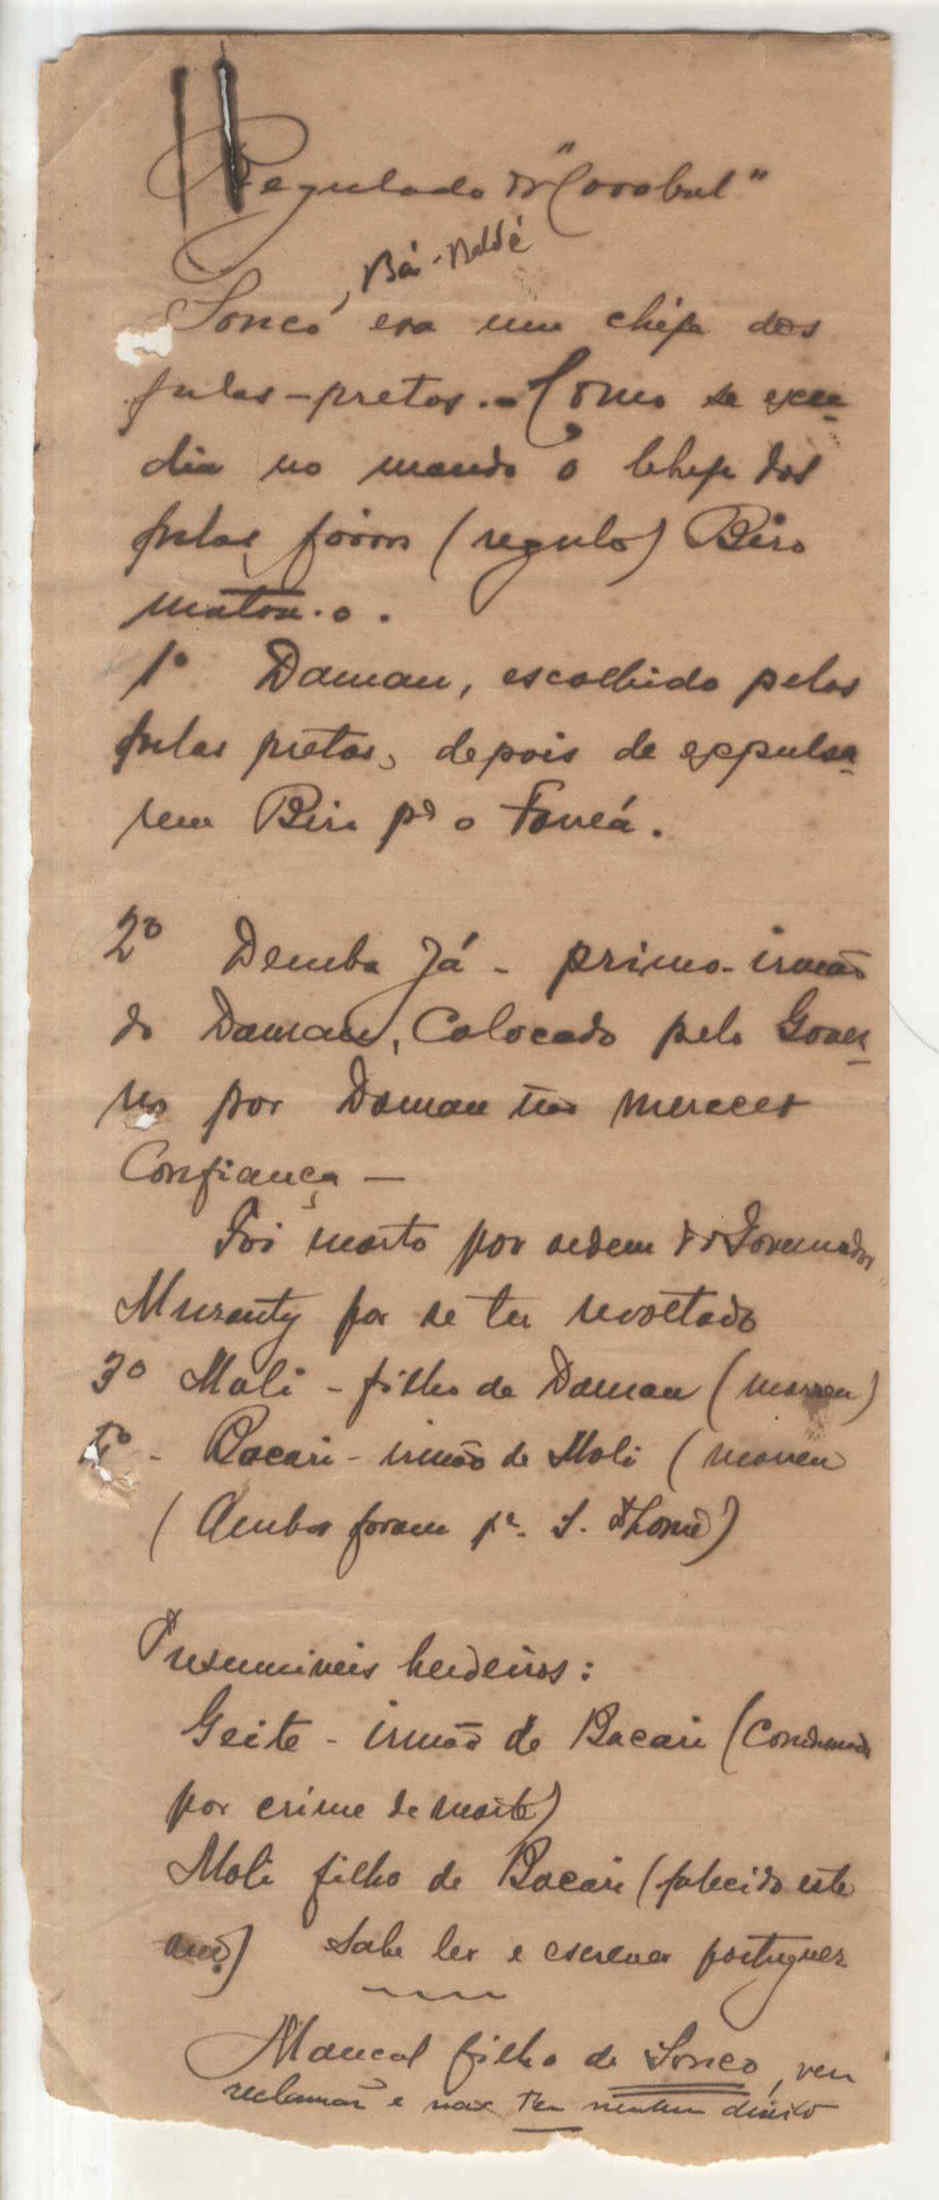 Regulado de "Corobal"
Bá-Naldé
Soncó, era um chefe dos
fulas-pretos. - Como se exce-
dia no mando o Chefe dos
fulas fórros (regulo) Biro
matou-o.
1º Daman, escolhido pelos
fulas pretos, depois de expulsa-
rem Biro pª o Forreá.
2º Demba Já - primo-irmão
do Daman, Colocado pelo Gover-
no por Daman não merecer
Confiança -
Foi morto por ordem do Governador
Muzanty por se ter revoltado
3º Moli - filho de Daman (morreu)
4º - Bacari - irmão de Moli (morreu
(Ambos foram pª. S. Thomé)
Presumiveis herdeiros:
Geite - irmão de Bacari (Condemnado
por crime de morte)
Moli filho de Bacari (falecido este
ano) Sabe ler e escrever portuguez
Mancal filho de Soncó, vem
reclamar e não tem nenhum direito